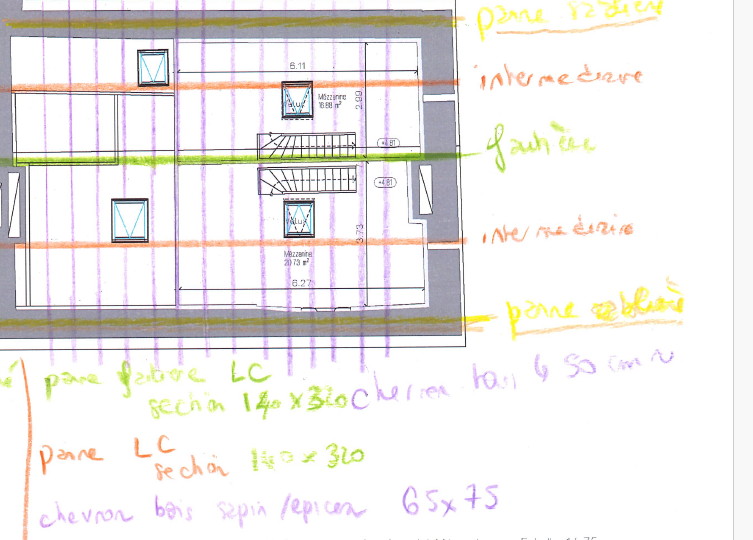 panne sablière
6.11
intermédiaire
Velux
Mezzanine
16.88 m²
2.99
+4.81
faitière
+4.81
Velux
intermédiaire
3.73
Mezzanine
20.73 m²
6.27
panne sablière
panne faitiere LC
section 140 x 320
chevron tous 50 cm
panne LC
section 140 x 320
chevron bois sapin / epicea 65x75